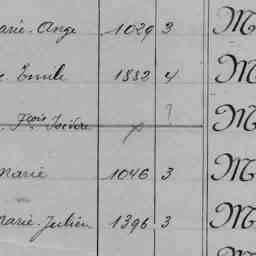 arie-Ange 1029 3 M
Emile 1882 4 M
fçois Isidore ? M
Marie 1046 3 M
Marie-Julien 1396 3 M